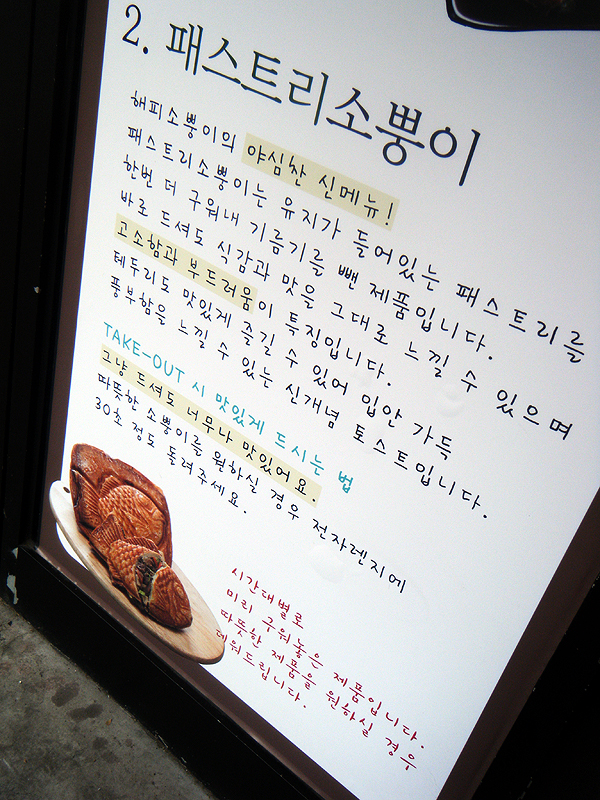 2. 패스트리소뿡이
해피소뿡이의 야심찬 신메뉴!
패스트리소뿡이는 유지가 들어있는 패스트리를
한번 더 구워내 기름기를 뺀 제품입니다.
바로 드셔도 식감과 맛을 그대로 느낄 수 있으며
고소함과 부드러움이 특징입니다.
테두리도 맛있게 즐길 수 있어 입안 가득
풍부함을 느낄 수 있는 신개념 토스트입니다.
TAKE-OUT 시 맛있게 드시는 법
그냥 드셔도 너무나 맛있어요.
따뜻한 소뿡이를 원하실 경우 전자렌지에
30초 정도 돌려주세요.
시간대별로
미리 구워놓은 제품입니다.
따뜻한 제품을 원하실 경우
데워드립니다.